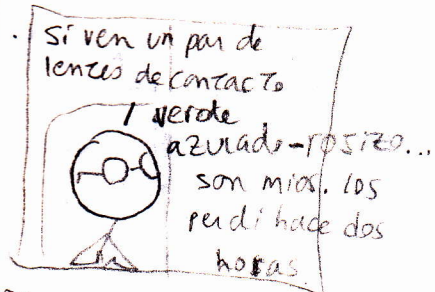 Si ven un par de
lentes de contacto
verde
azulado-rosizo...
son mios. los
perdi hace dos
horas